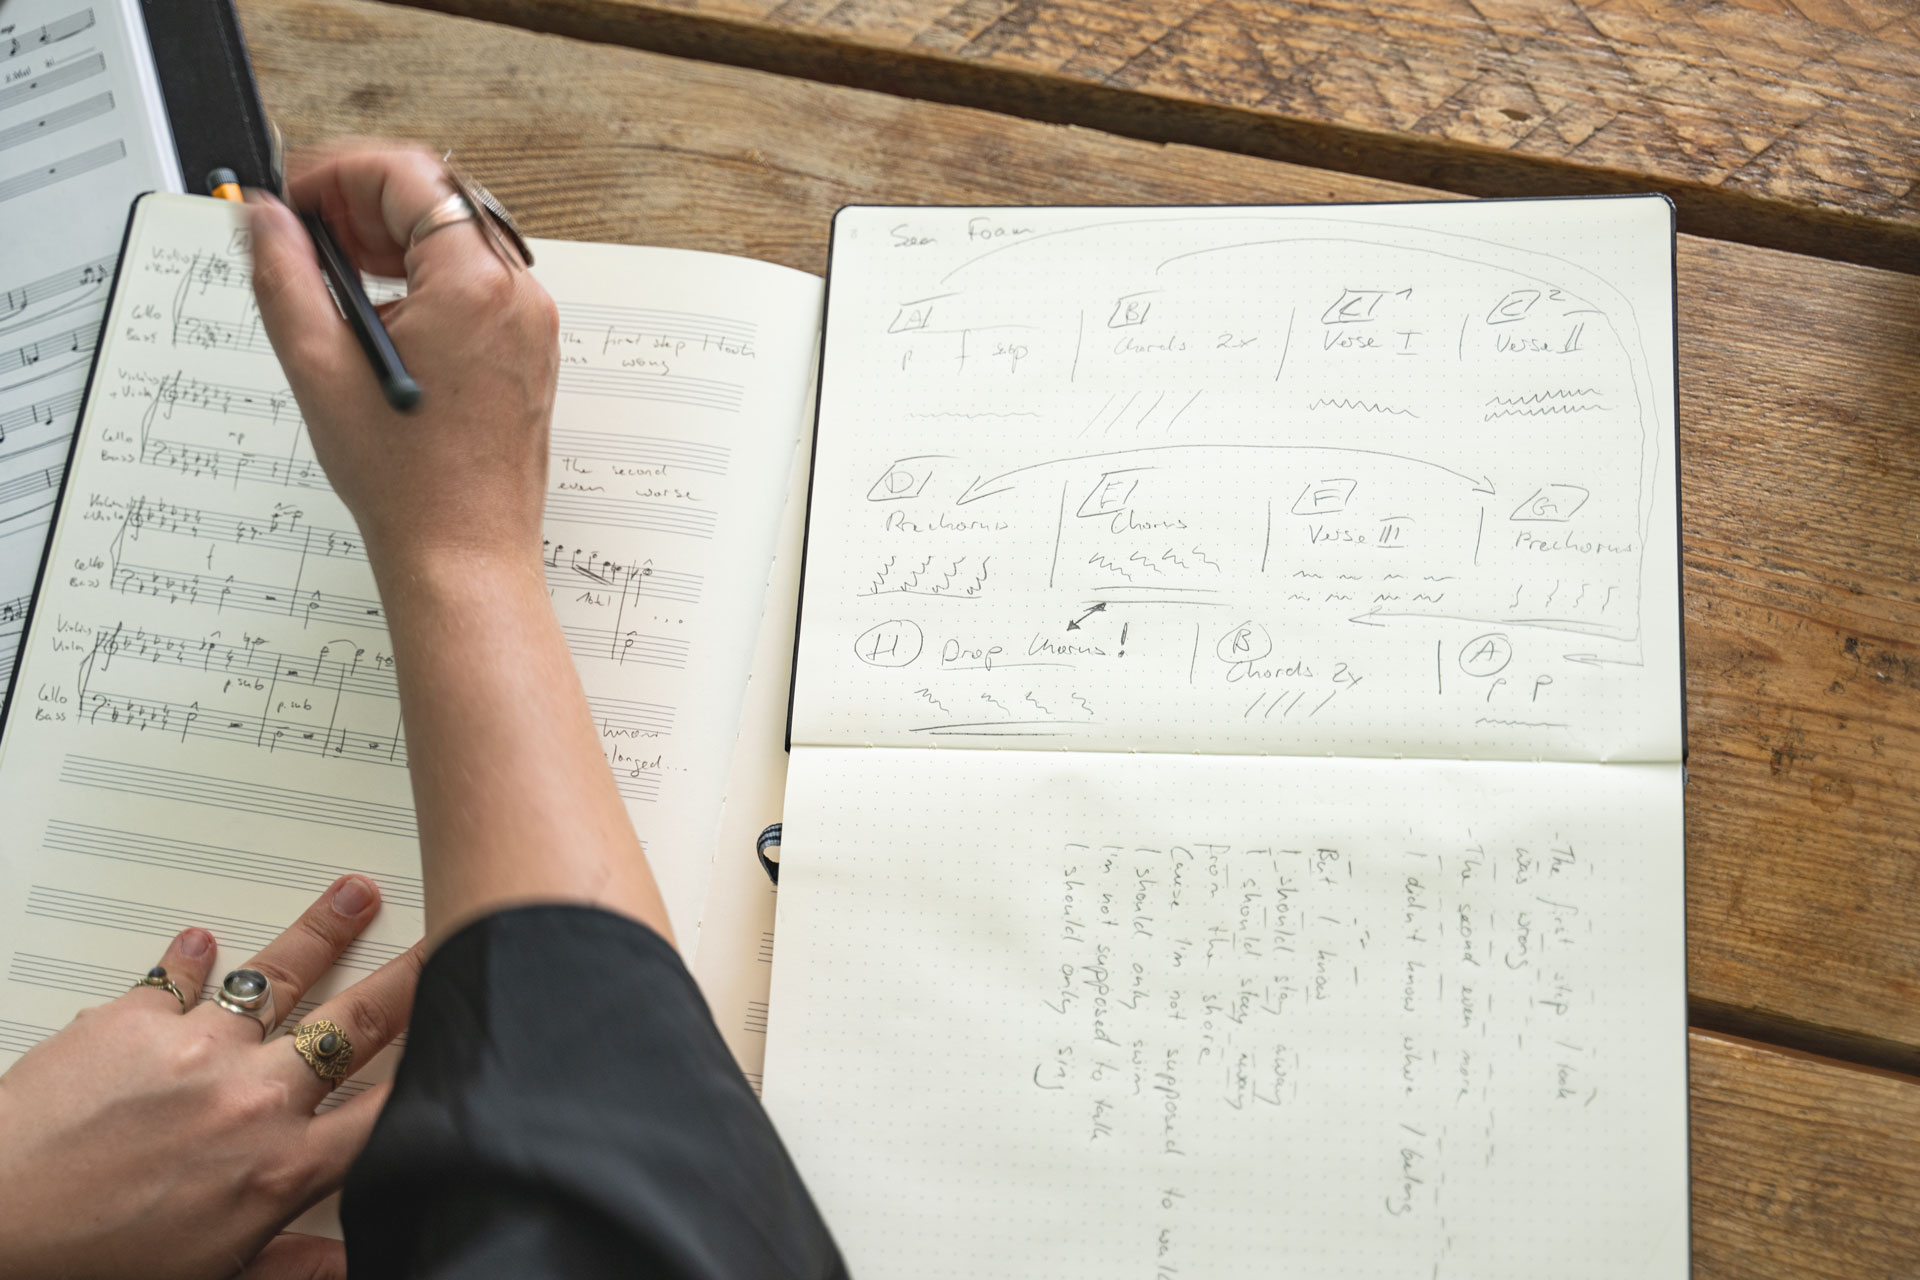 Violins
+ Viola
Cello
Bass
The first step I took
was wrong
Violins
+ Viola
mp
Cello
Bass
The second
even worse
Violins
Viola
f
Cello
Bass
...
Violins
Viola
p. sub
p. sub
Cello
Bass
know
longed...
Sea Foam
A B C1 C2
p f
Chords 2x
Verse I
Verse II
D E F G
Prechorus
Chorus
Verse III
Prechorus
H Drop Chorus! B A
Chords 2x
p p
- The first step I took
was wrong
- The second even more
- I didn't know where I belong
But I know
I should stay away
I should stay away
from the shore
Cause I'm not supposed to walk
I should only swim
I'm not supposed to talk
I should only sing